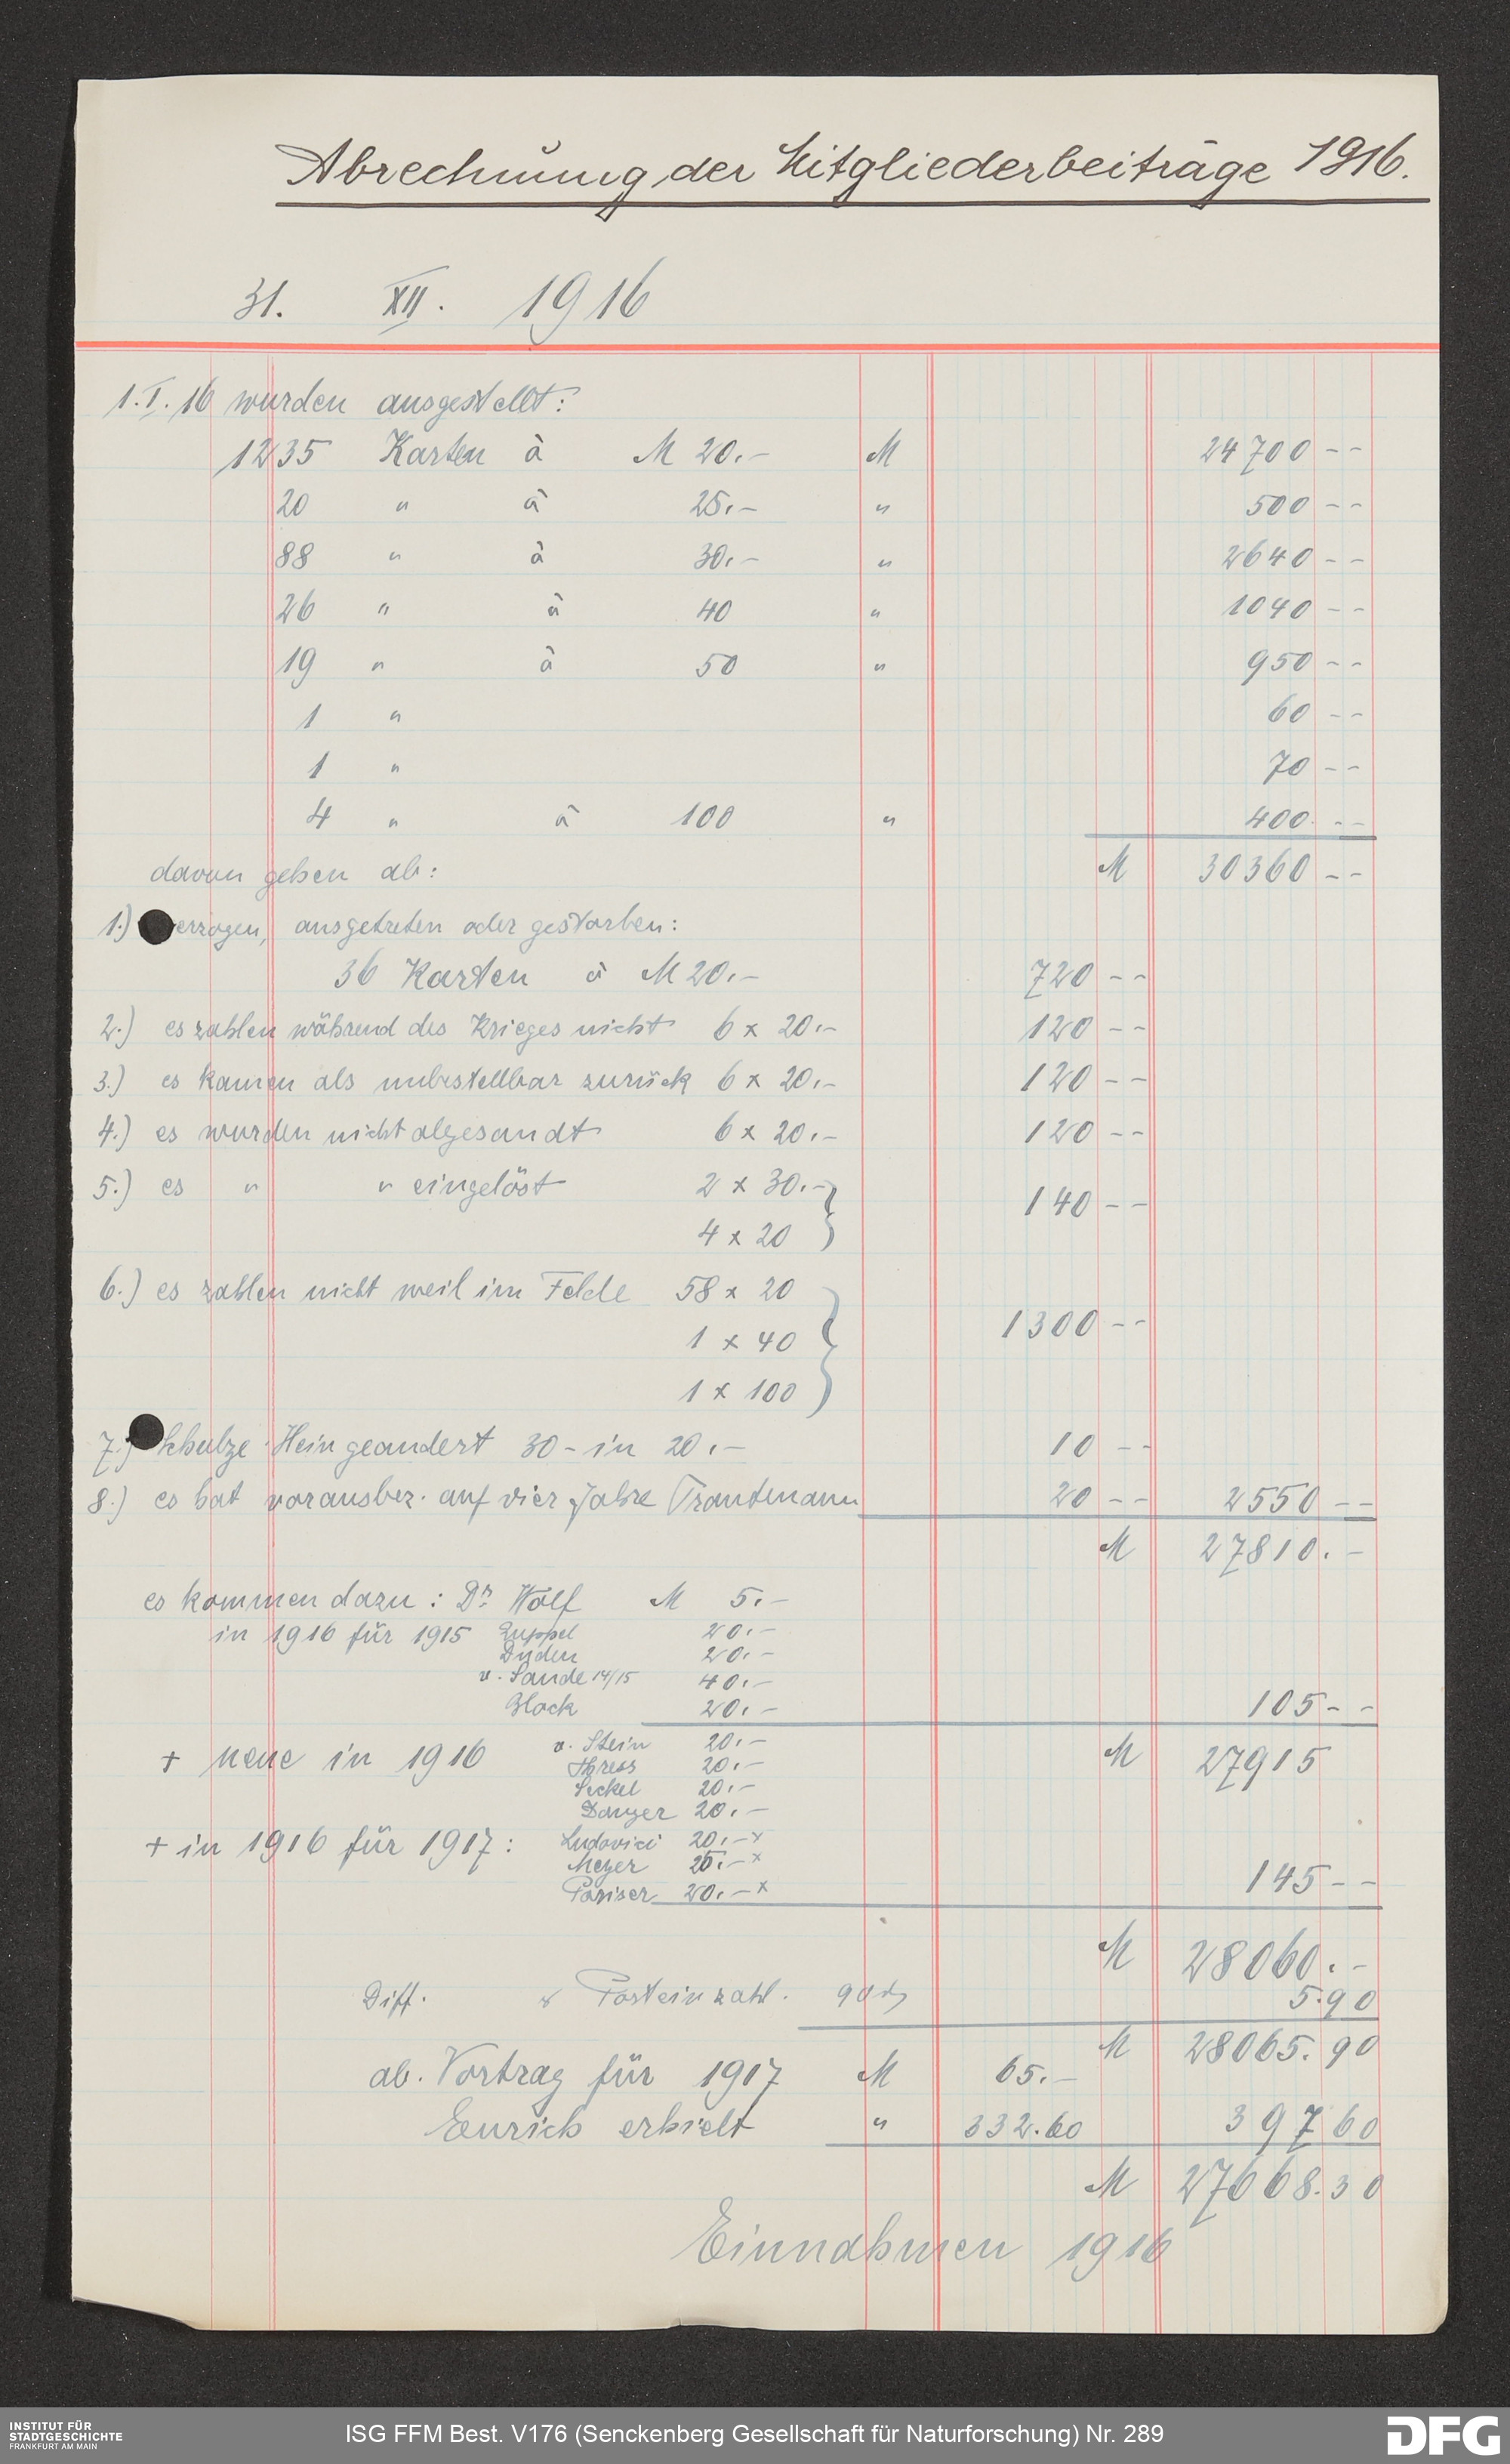 Abrechnung der Mitgliederbeiträge 1916.
31. XII. 1916
1.I.16 wurden ausgestellt:
1235 Karten à M 20.- M 24700 --
20 " à 25.- " 500 --
88 " à 30.- " 2640 --
26 " à 40 " 1040 --
19 " à 50 " 950 --
1 " 60 --
1 " 70 --
4 " à 100 " 400 --
davon gehen ab: M 30360 --
1.) verzogen, ausgetreten oder gestorben:
36 Karten à M 20.- 720 --
2.) es zahlen während des Krieges nicht 6 x 20.- 120 --
3.) es kamen als unbestellbar zurück 6 x 20.- 120 --
4.) es wurden nicht abgesandt 6 x 20.- 120 --
5.) es " " eingelöst 2 x 30.- 140 --
4 x 20
6.) es zahlen nicht weil im Felde 58 x 20
1 x 40 1300 --
1 x 100
7.) Schulze-Hein geandert 30- in 20.- 10 --
8.) es hat vorausbez. auf vier Jahre Trautmann 20 -- 2550 --
M 27810.-
es kommen dazu: Dr. Wolf M 5.-
in 1916 für 1915 20.-
Duden 20.-
v. Sande 14/15 40.-
Block 20.- 105 --
v. Stein 20.-
+ neue in 1916 20.- M 27915
Seckel 20.-
20.-
+ in 1916 für 1917: Ludovici 20.- x
Meyer 25.- x
Pariser 20.- x 145 --
M 28060.-
Diff. & Posteinzahl. 90 5.90
M 28065.90
ab. Vortrag für 1917 M 65.-
Enrich erhielt " 332.60 397 60
M 27668.30
Einnahmen 1916
INSTITUT FÜR
STADTGESCHICHTE
FRANKFURT AM MAIN
ISG FFM Best. V176 (Senckenberg Gesellschaft für Naturforschung) Nr. 289
DFG